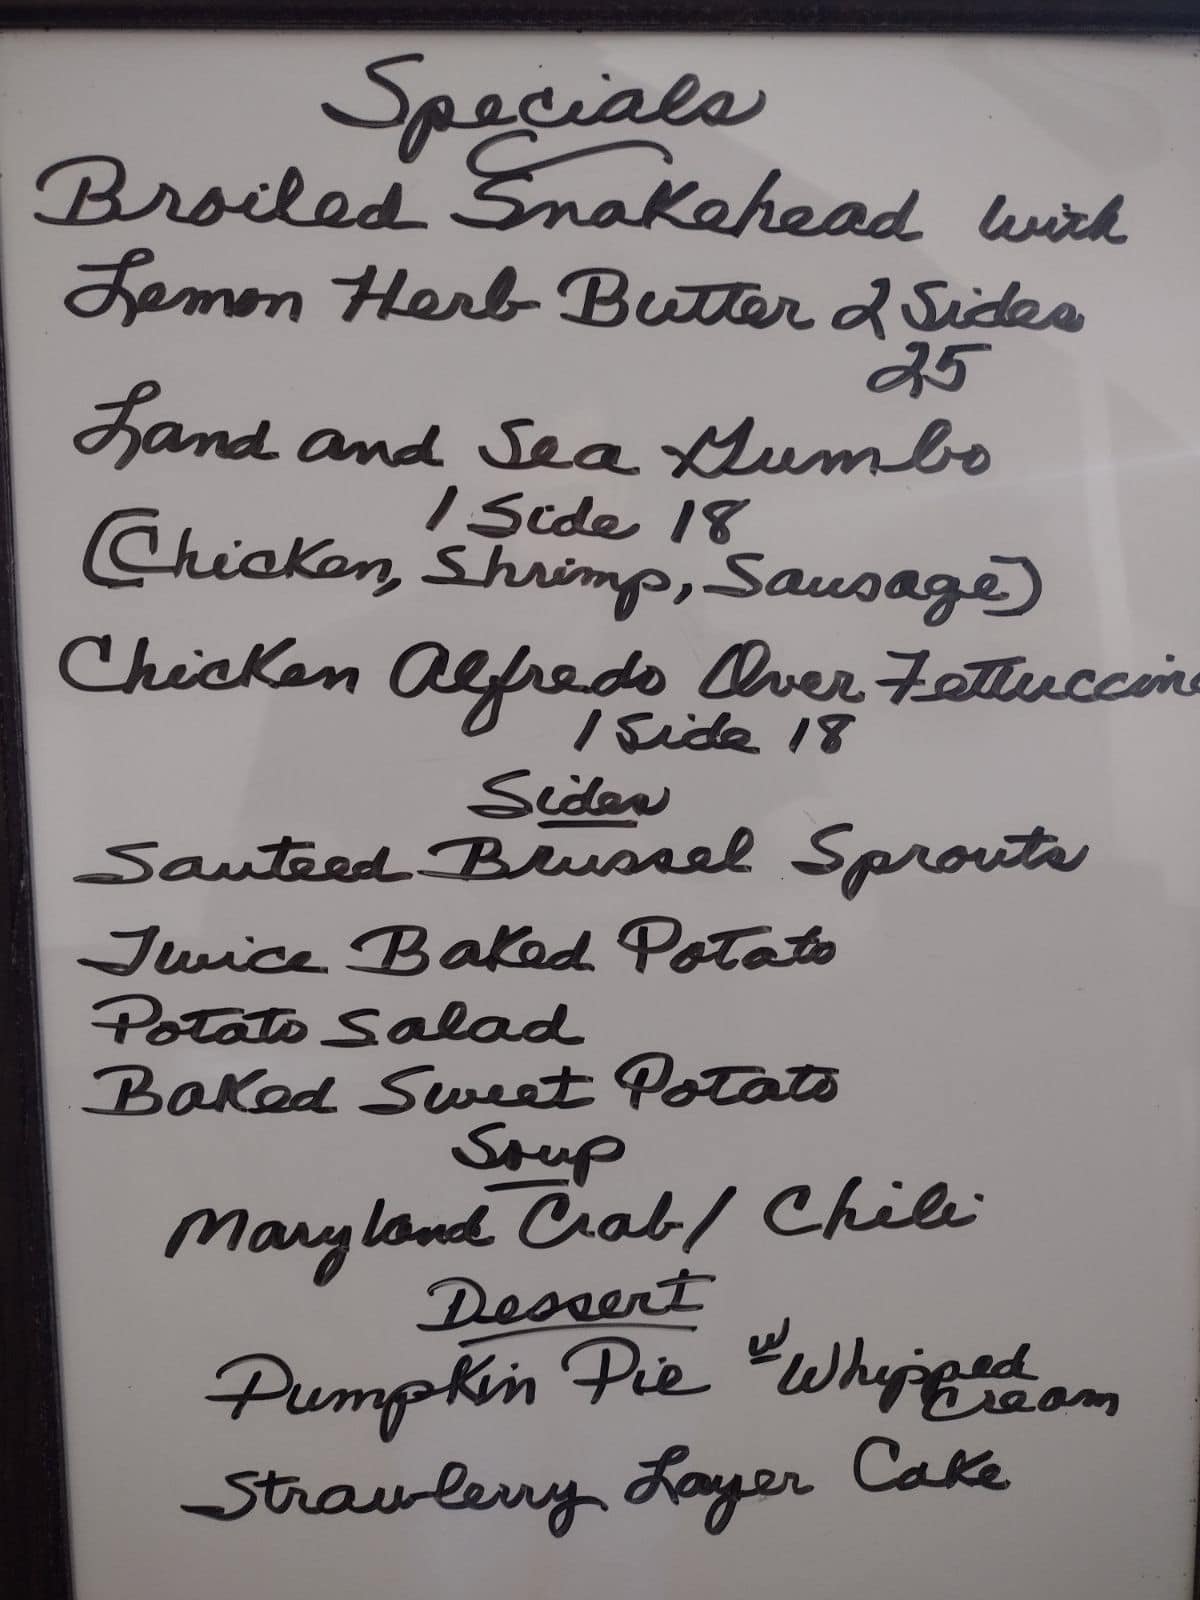 Specials
Broiled Snakehead with
Lemon Herb Butter 2 Sides
25
Land and Sea Gumbo
1 Side 18
(Chicken, Shrimp, Sausage)
Chicken Alfredo Over Fettuccine
1 Side 18
Sides
Sauteed Brussel Sprouts
Twice Baked Potato
Potato Salad
Baked Sweet Potato
Soup
Maryland Crab / Chili
Dessert
Pumpkin Pie w Whipped
Cream
Strawberry Layer Cake